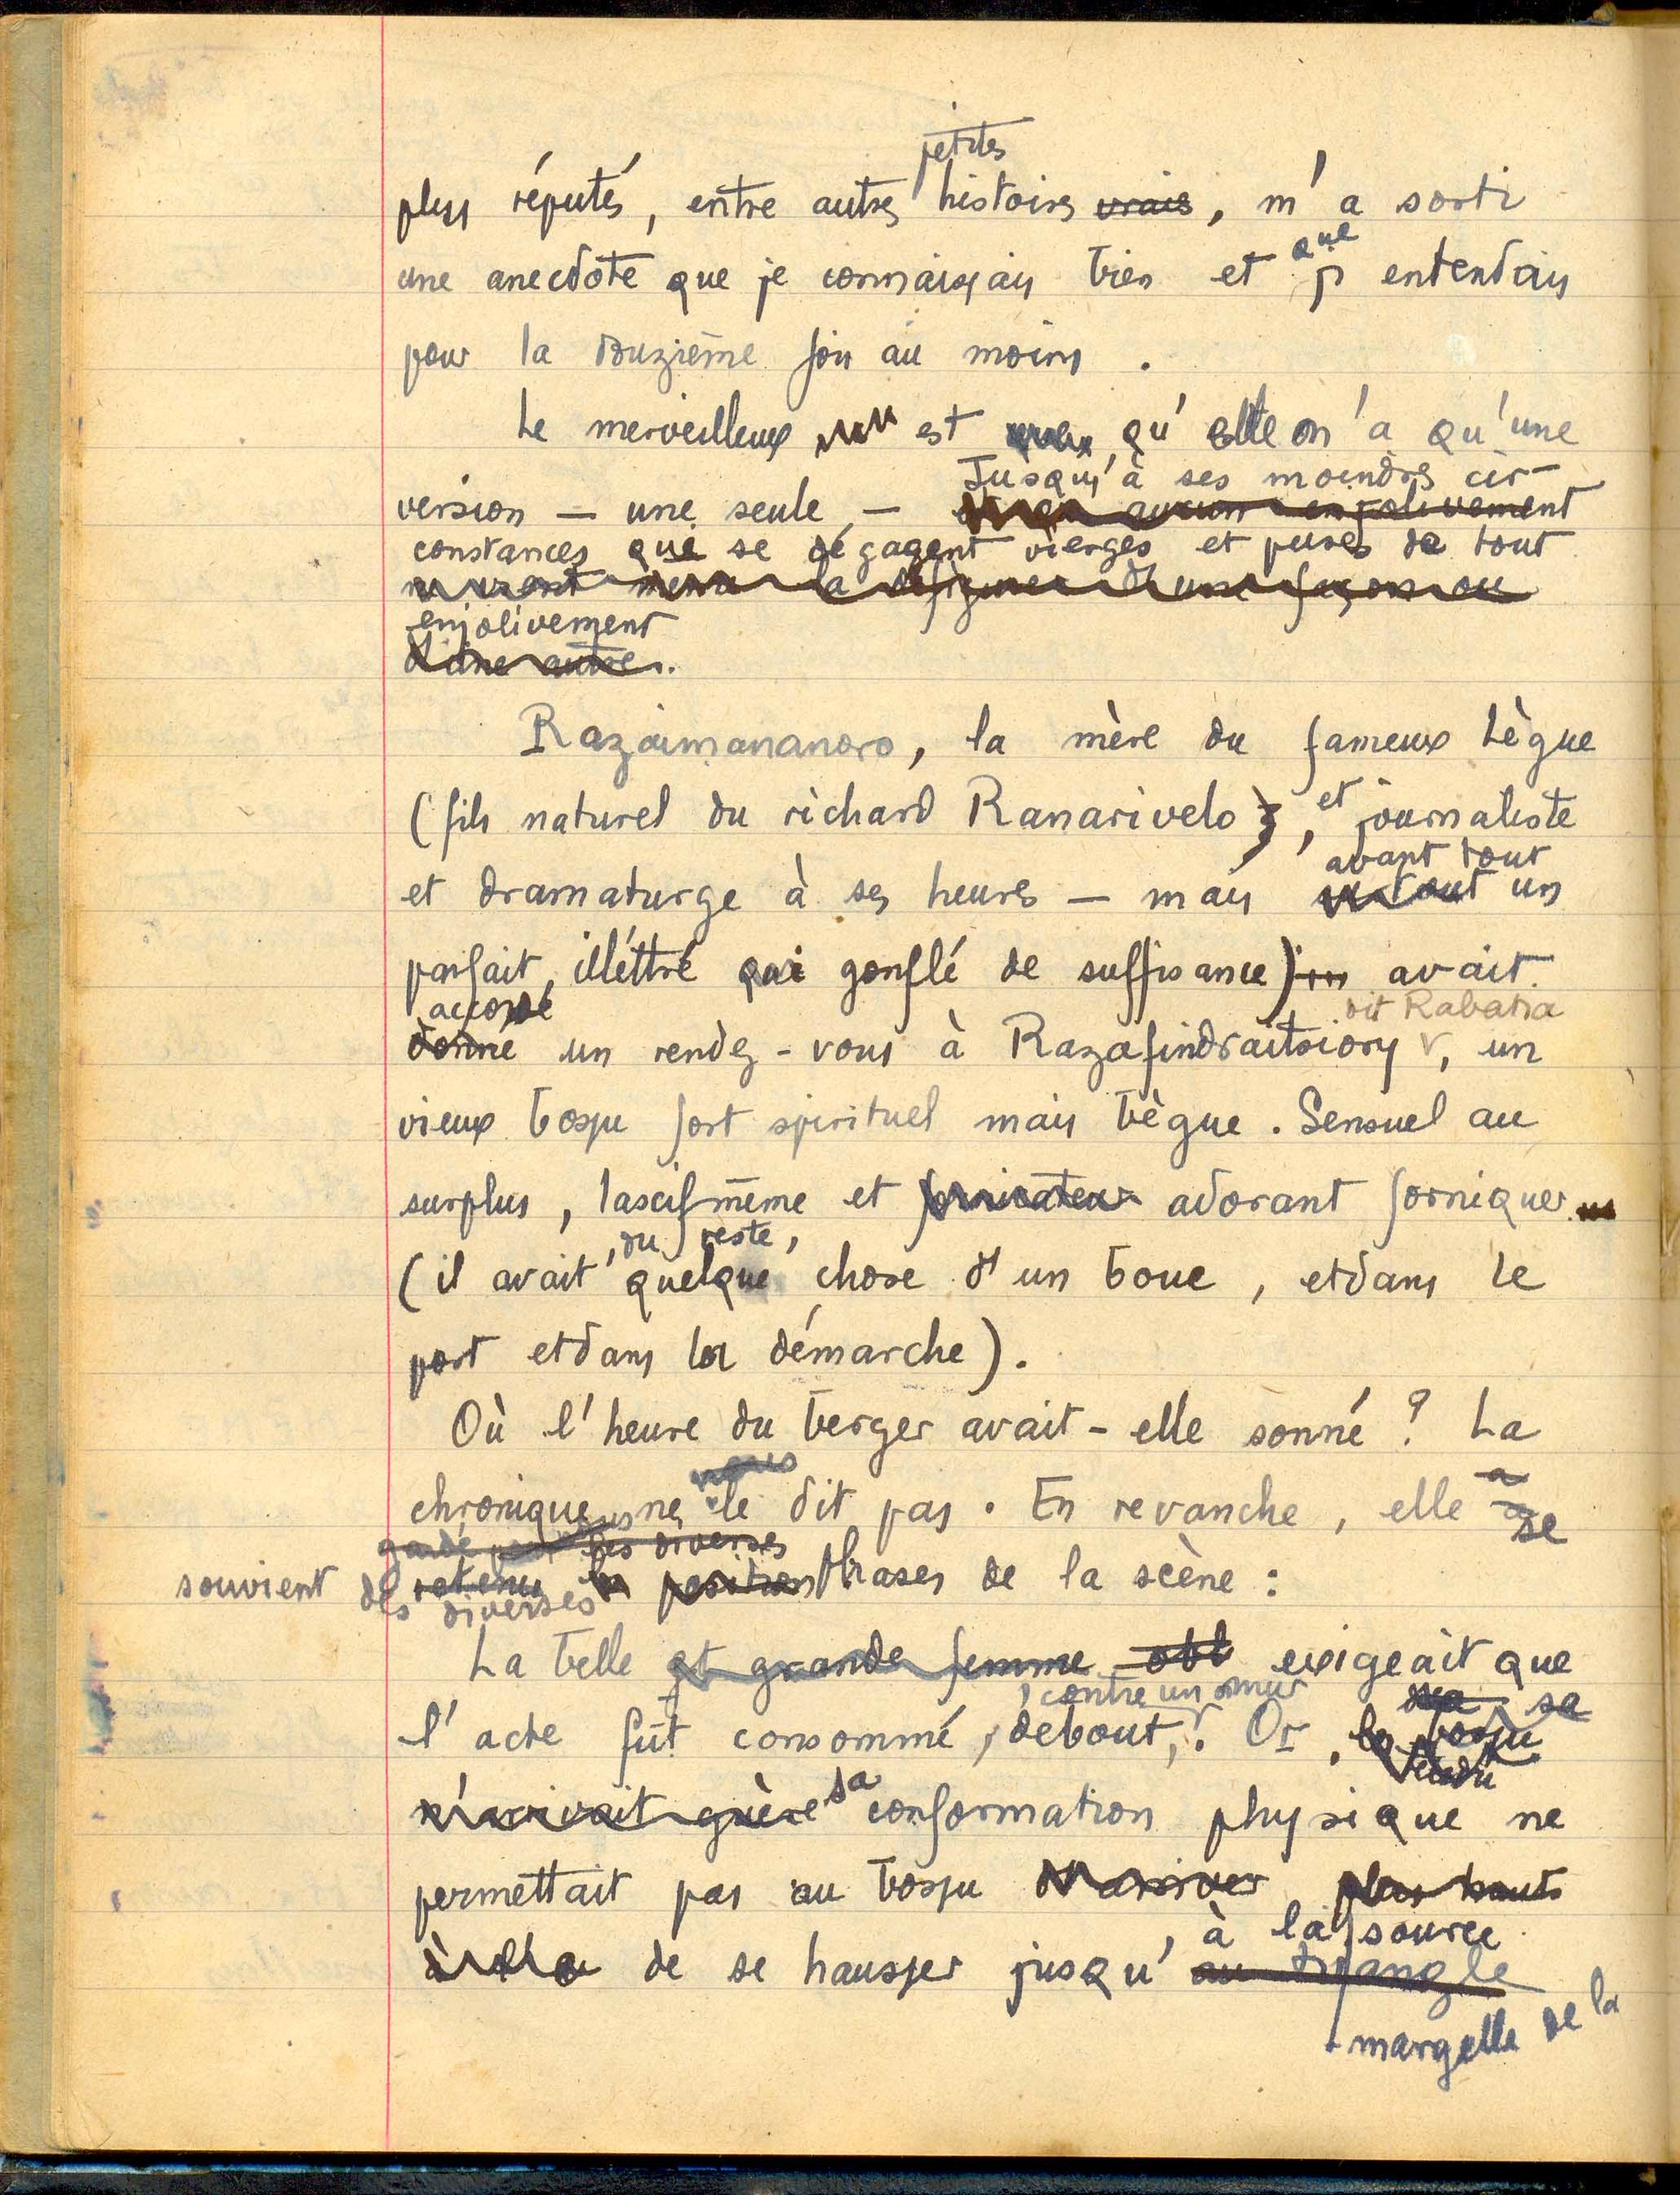 petites
plus réputés, entre autres histoires vrais, m'a sorti
que
une anecdote que je connaissais bien et j' entendais
pour la douzième fois au moins.
Le merveilleux est qu' elle n'a qu'une
Jusqu'à ses moindres cir-
version — une seule, — aucun enjolivement
constances que se dégagent vierges et pures de tout
défigurer d'une façon ou
enjolivement
d'une autre.
Razaimananoro, la mère du fameux Lègue
(fils naturel du richard Ranarivelo), et journaliste
avant tout
et dramaturge à ses heures — mais surtout un
parfait, illéttré qui gonflé de suffisance) avait
accordé
dit Rabatia
donné un rendez-vous à Razafindraitsiory, un
vieux bossu fort spirituel mais bègue. Sensuel au
surplus, lascif même et fornicateur adorant forniquer
, du reste,
(il avait quelque chose d'un bouc, et dans le
port et dans la démarche).
Où l'heure du berger avait-elle sonné ? La
nous
chronique ne le dit pas. En revanche, elle a se
gardé pour les diverses
souvient des retenu positions phases de la scène :
diverses
La belle et grande femme obl exigeait que
, contre un mur
sa
l'acte fût consommé, debout,. Or, le bossu
n'arrivait guère sa conformation physique ne
permettait pas au bossu d'arriver plus haut
, à la source
de se hausser jusqu' au triangle
margelle de la